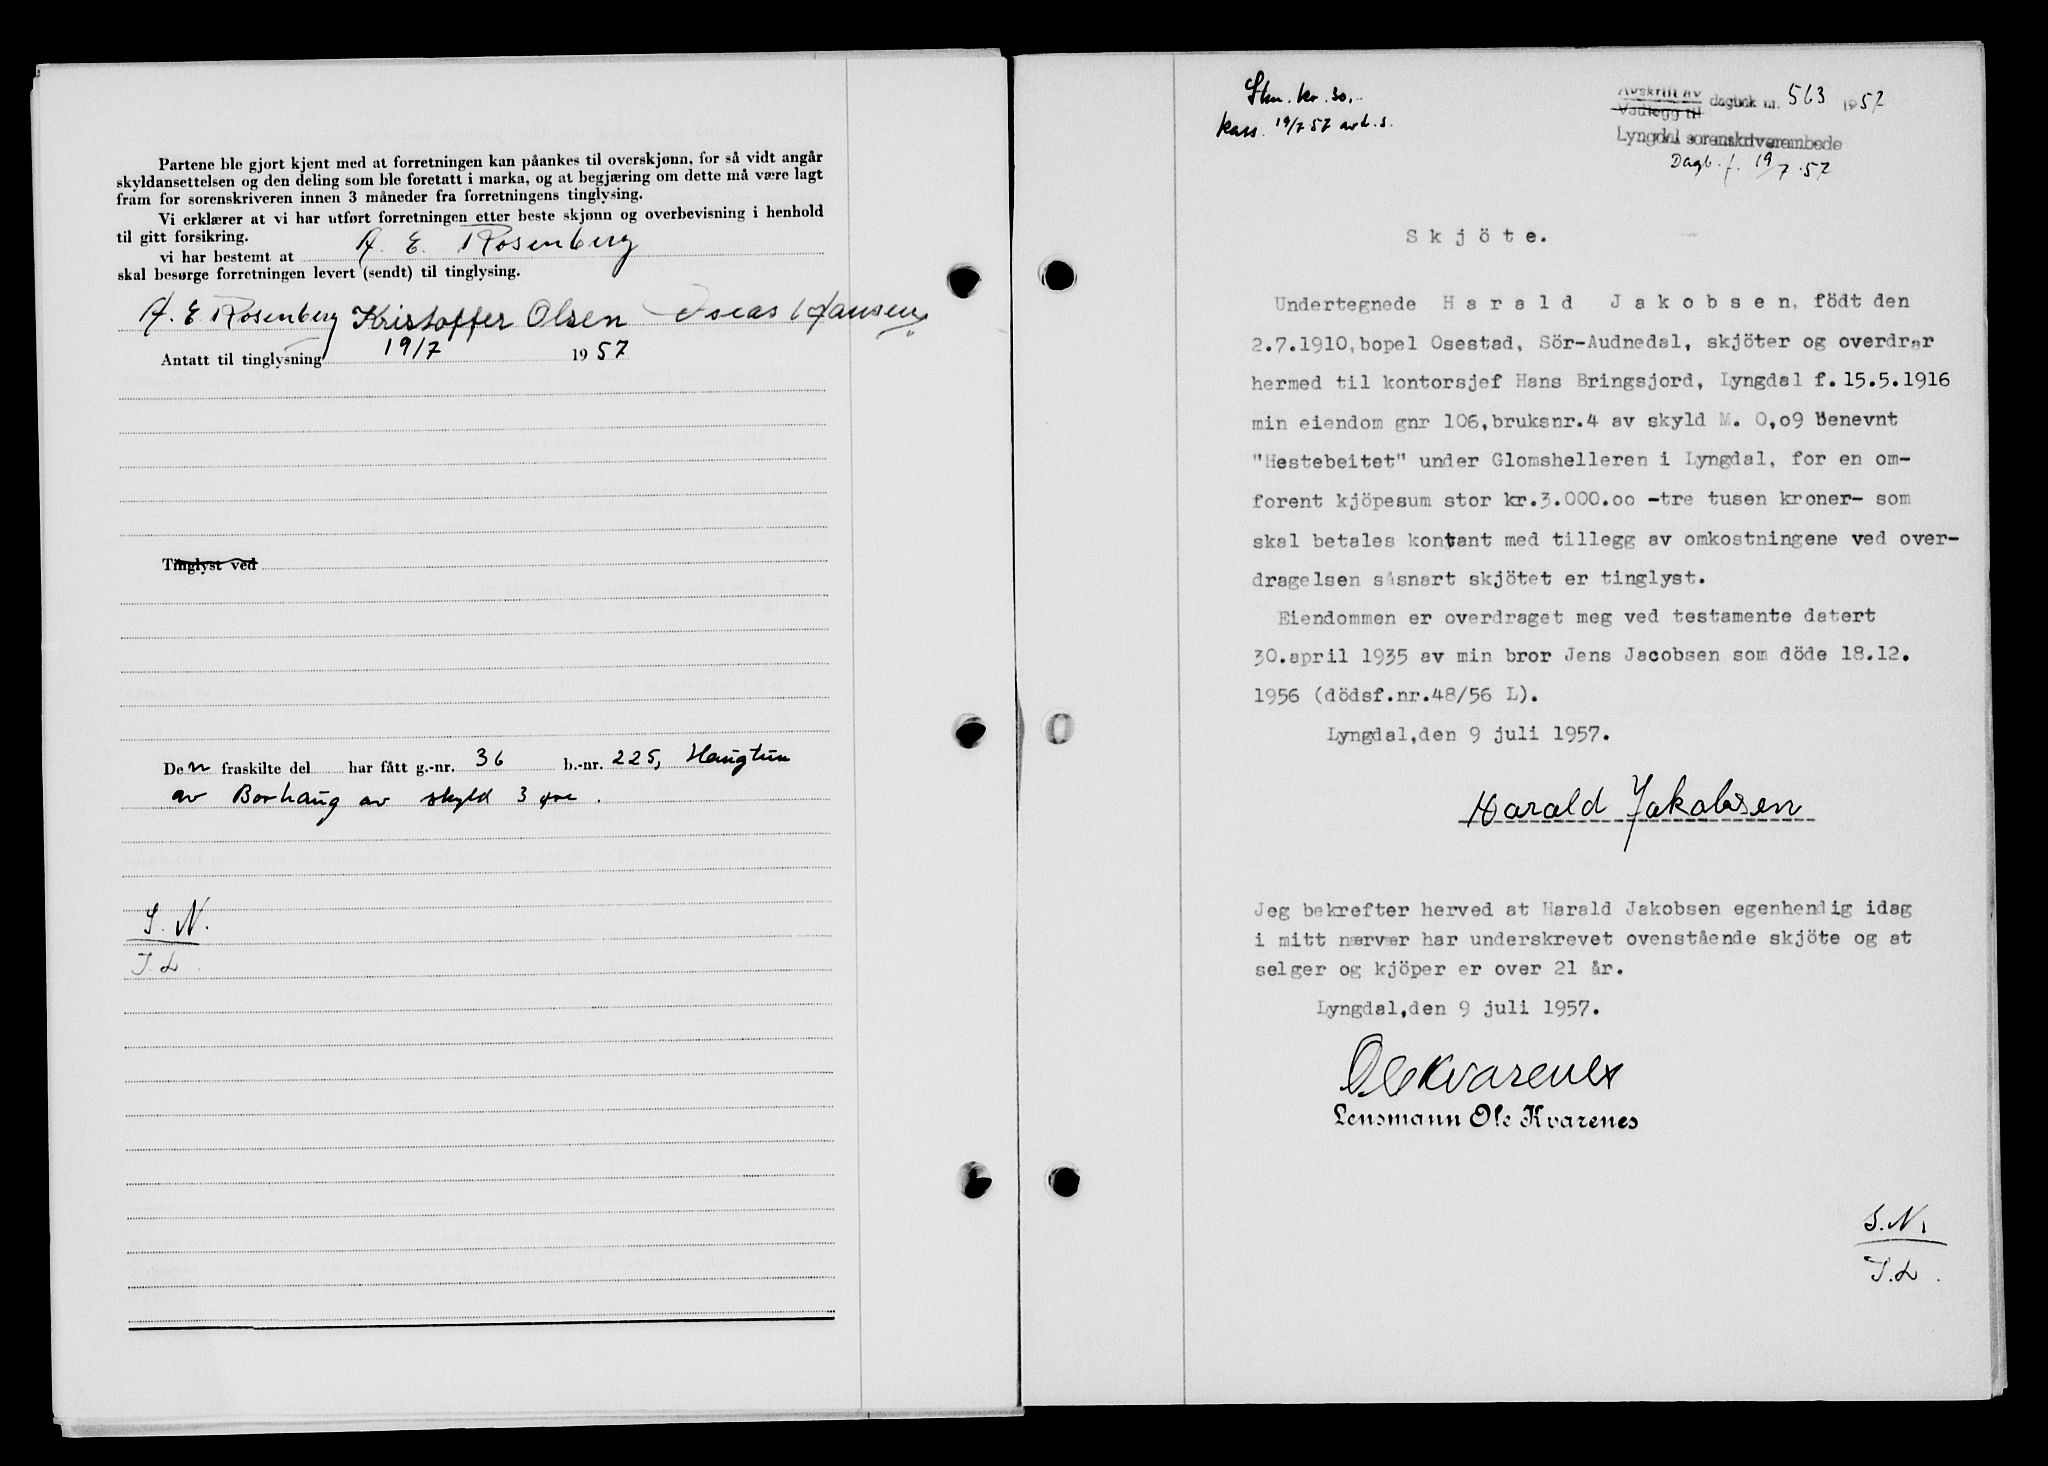 Partene ble gjort kjent med at forretningen kan påankes til overskjønn, for så vidt angår
skyldansettelsen og den deling som ble foretatt i marka, og at begjæring om dette må være lagt
fram for sorenskriveren innen 3 måneder fra forretningens tinglysing.
Vi erklærer at vi har utført forretningen etter beste skjønn og overbevisning i henhold
til gitt forsikring.
vi har bestemt at A. E. Rosenberg
skal besørge forretningen levert (sendt) til tinglysing.
A. E Rosenberg Kristoffer Olsen Oscar Hansen
Antatt til tinglysning 19/7 1957
Tinglyst ved
Den fraskilte del har fått g.-nr. 36 b.-nr. 225, Haugtun
av Borhaug av skyld 3 øre.
S. N.
T. L.
Stm. kr. 30.-
kass. 19/7 57
Avskrift av
Vedlegg til dagbok nr. 563 1957
Lyngdal sorenskriverembede
Dagb. f. 19/7.57
Skjöte.
Undertegnede Harald Jakobsen, födt den
2.7.1910,bopel Osestad, Sör-Audnedal, skjöter og overdrar
hermed til kontorsjef Hans Bringsjord, Lyngdal f. 15.5.1916
min eiendom gnr 106,bruksnr.4 av skyld M. 0,o9 benevnt
"Hestebeitet" under Glomshelleren i Lyngdal, for en om-
forent kjöpesum stor kr.3.000.oo -tre tusen kroner- som
skal betales kontant med tillegg av omkostningene ved over-
dragelsen såsnart skjötet er tinglyst.
Eiendommen er overdraget meg ved testamente datert
30.april 1935 av min bror Jens Jacobsen som döde 18.12.
1956 (dödsf.nr.48/56 L).
Lyngdal,den 9 juli 1957.
Harald Jakobsen
Jeg bekrefter herved at Harald Jakobsen egenhendig idag
i mitt nærvær har underskrevet ovenstående skjöte og at
selger og kjöper er over 21 år.
Lyngdal,den 9 juli 1957.
Ole Kvarenes
Lensmann Ole Kvarenes
S. N.
T. L.